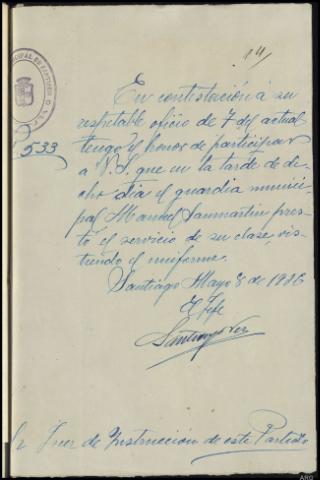 14
533
En contestación á su
respetable oficio de 7 del actual
tengo el honor de participar
a V.S. que en la tarde de di-
cho dia el guardia munici-
pal Manuel Sanmartin pres-
tó el servicio de su clase, vis-
tiendo el uniforme.
Santiago Mayo 8 de 1936
El Jefe
Sr Juez de Instrucción de este Partido